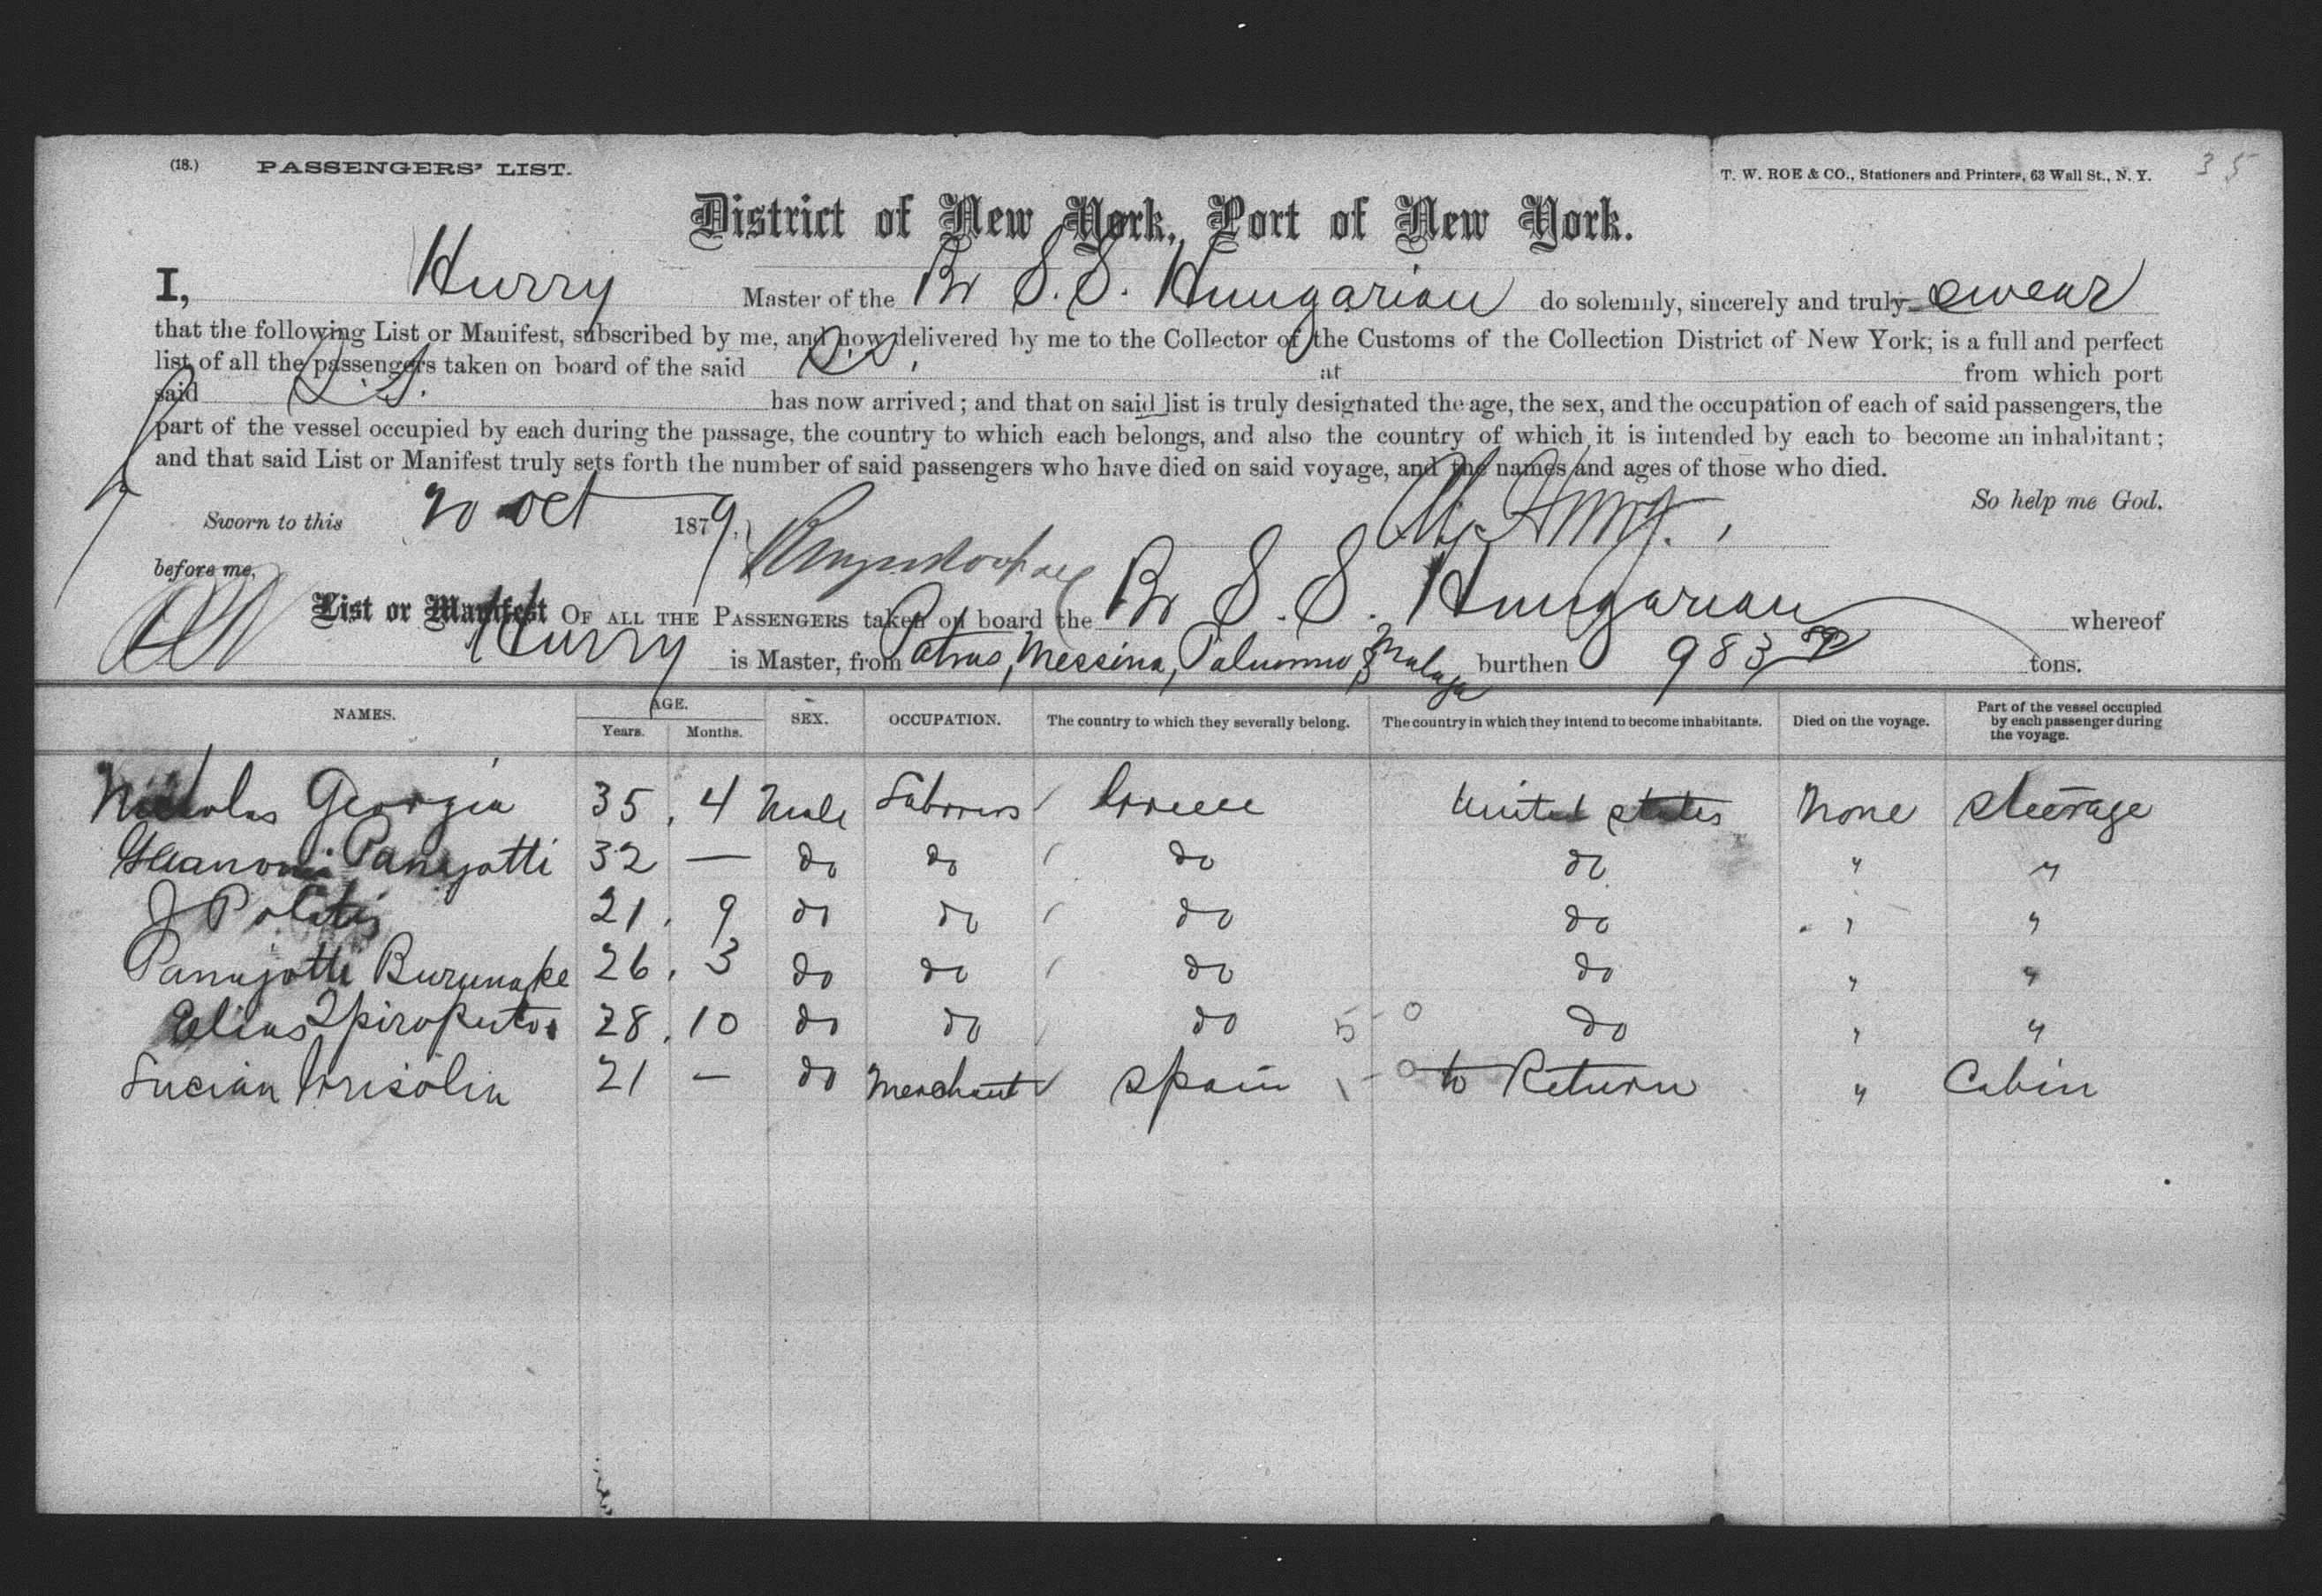 (18.) PASSENGERS' LIST. T. W. ROE & CO., Stationers and Printers, 63 Wall St., N. Y. 35
District of New York, Port of New York.
I, Hurry Master of the Br S.S. Hungarian do solemnly, sincerely and truly swear
that the following List or Manifest, subscribed by me, and now delivered by me to the Collector of the Customs of the Collection District of New York; is a full and perfect
list of all the passengers taken on board of the said S.S. at from which port
said S.S. has now arrived; and that on said list is truly designated the age, the sex, and the occupation of each of said passengers, the
part of the vessel occupied by each during the passage, the country to which each belongs, and also the country of which it is intended by each to become an inhabitant;
and that said List or Manifest truly sets forth the number of said passengers who have died on said voyage, and the names and ages of those who died.
So help me God.
Sworn to this 20 Oct 1879. Hurry.
before me,
List or Manifest OF ALL THE PASSENGERS taken on board the Br S.S. Hungarian whereof
Hurry is Master, from Patras, Messina, Palermo & Malaga burthen 983 tons.
NAMES. AGE. Years. Months. SEX. OCCUPATION. The country to which they severally belong. The country in which they intend to become inhabitants. Died on the voyage. Part of the vessel occupied by each passenger during the voyage.
Nicholas Georgia 35. 4 Male Labrrers Greece United States None Steerage
Panajotti 32 — do do do do " "
J Politis 21. 9 do do do do " "
Panajotti 26. 3 do do do do " "
Elias 28. 10 do do do 5-0 do " "
Lucian 21 — do Merchant Spain 1-0 to Return " Cabin